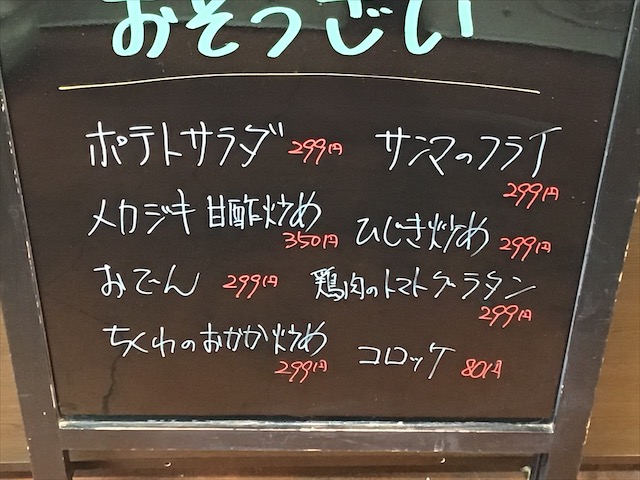 おそうざい
ポテトサラダ 299円
サンマのフライ
299円
メカジキ 甘酢炒め
350円
ひじき炒め 299円
おでん 299円
鶏肉のトマトグラタン
299円
ちくわのおかか炒め
299円
コロッケ 80円